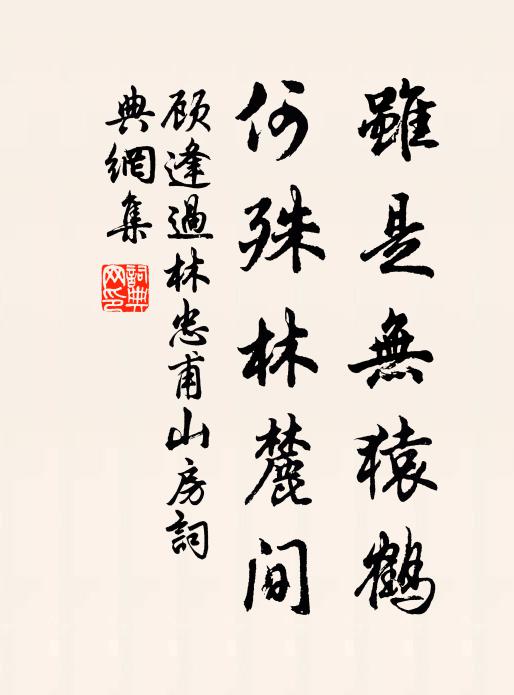 雖是無猿鶴
何殊林麓间
顾逢過林忠甫山房詞
典網集
詞典网印